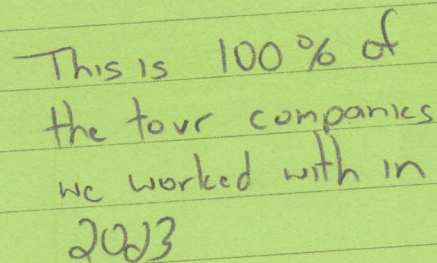 This is 100% of
the tour companies
we worked with in
2023